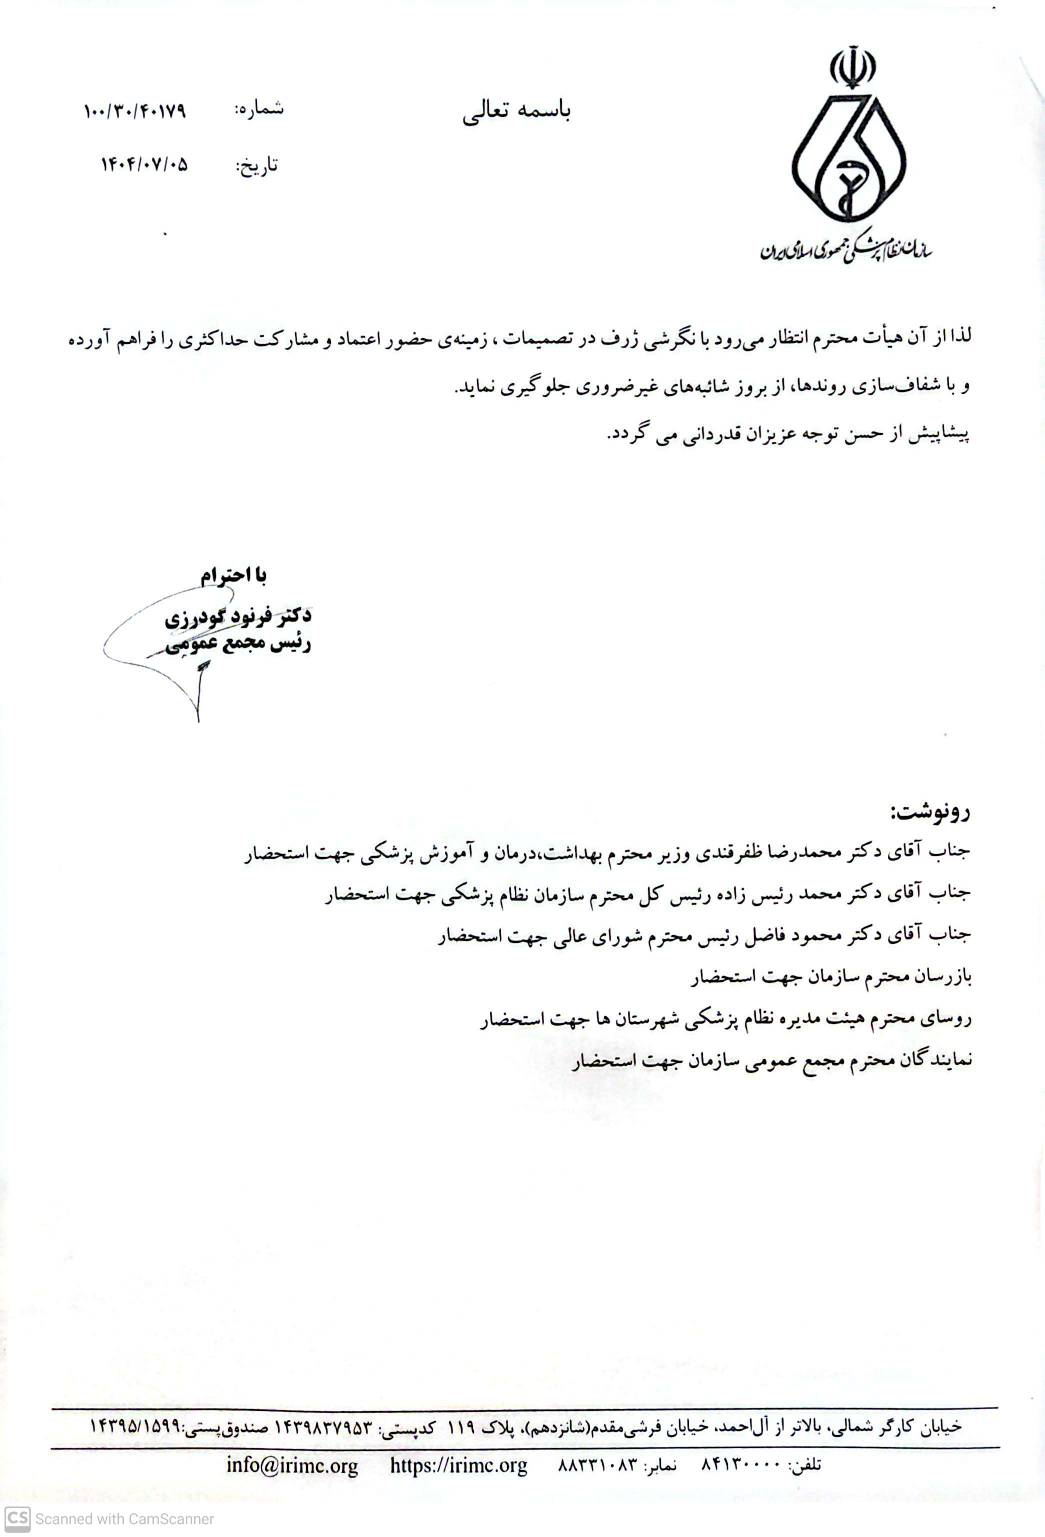 باسمه تعالی
شماره: ۱۰۰/۳۰/۴۰۱۷۹
تاریخ: ۱۴۰۴/۰۷/۰۵
سازمان نظام پزشکی جمهوری اسلامی ایران
لذا از آن هیأت محترم انتظار می‌رود با نگرشی ژرف در تصمیمات ، زمینه‌ی حضور اعتماد و مشارکت حداکثری را فراهم آورده
و با شفاف‌سازی روندها، از بروز شائبه‌های غیرضروری جلوگیری نماید.
پیشاپیش از حسن توجه عزیزان قدردانی می گردد.
با احترام
دکتر فرنود گودرزی
رئیس مجمع عمومی
رونوشت:
جناب آقای دکتر محمدرضا ظفرقندی وزیر محترم بهداشت،درمان و آموزش پزشکی جهت استحضار
جناب آقای دکتر محمد رئیس زاده رئیس کل محترم سازمان نظام پزشکی جهت استحضار
جناب آقای دکتر محمود فاضل رئیس محترم شورای عالی جهت استحضار
بازرسان محترم سازمان جهت استحضار
روسای محترم هیئت مدیره نظام پزشکی شهرستان ها جهت استحضار
نمایندگان محترم مجمع عمومی سازمان جهت استحضار
خیابان کارگر شمالی، بالاتر از آل‌احمد، خیابان فرشی‌مقدم(شانزدهم)، پلاک ۱۱۹ کدپستی: ۱۴۳۹۸۳۷۹۵۳ صندوق‌پستی:۱۴۳۹۵/۱۵۹۹
تلفن: ۸۴۱۳۰۰۰۰ نمابر: ۸۸۳۳۱۰۸۳ https://irimc.org info@irimc.org
CS Scanned with CamScanner